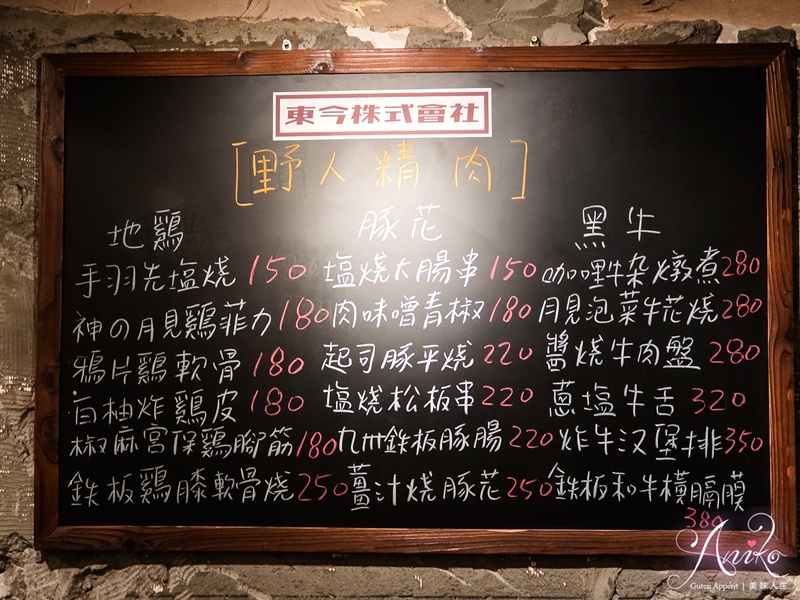 東今株式會社
[野人精肉]
地鶏 豚花 黑牛
手羽先塩燒 150 塩燒大腸串 150 咖哩牛杂燉煮 280
神の月見鶏菲力 180 肉味噌青椒 180 月見泡菜牛花燒 280
鴉片鶏軟骨 180 起司豚平燒 220 醬燒牛肉盤 280
白柚炸鶏皮 180 塩燒松板串 220 蔥塩牛舌 320
椒麻宮保鶏腳筋 180 九州鉄板豚腸 220 炸牛汉堡排 350
鉄板鶏膝軟骨燒 250 薑汁燒豚花 250 鉄板和牛橫膈膜
380
Aniko
Guten Appetit | 美味人生